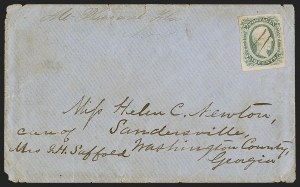 Mt Pleasant Ala
Miss Helen C. Newton,
care of Sandersville,
Mrs G. H. Saffold Washington County,
Georgia